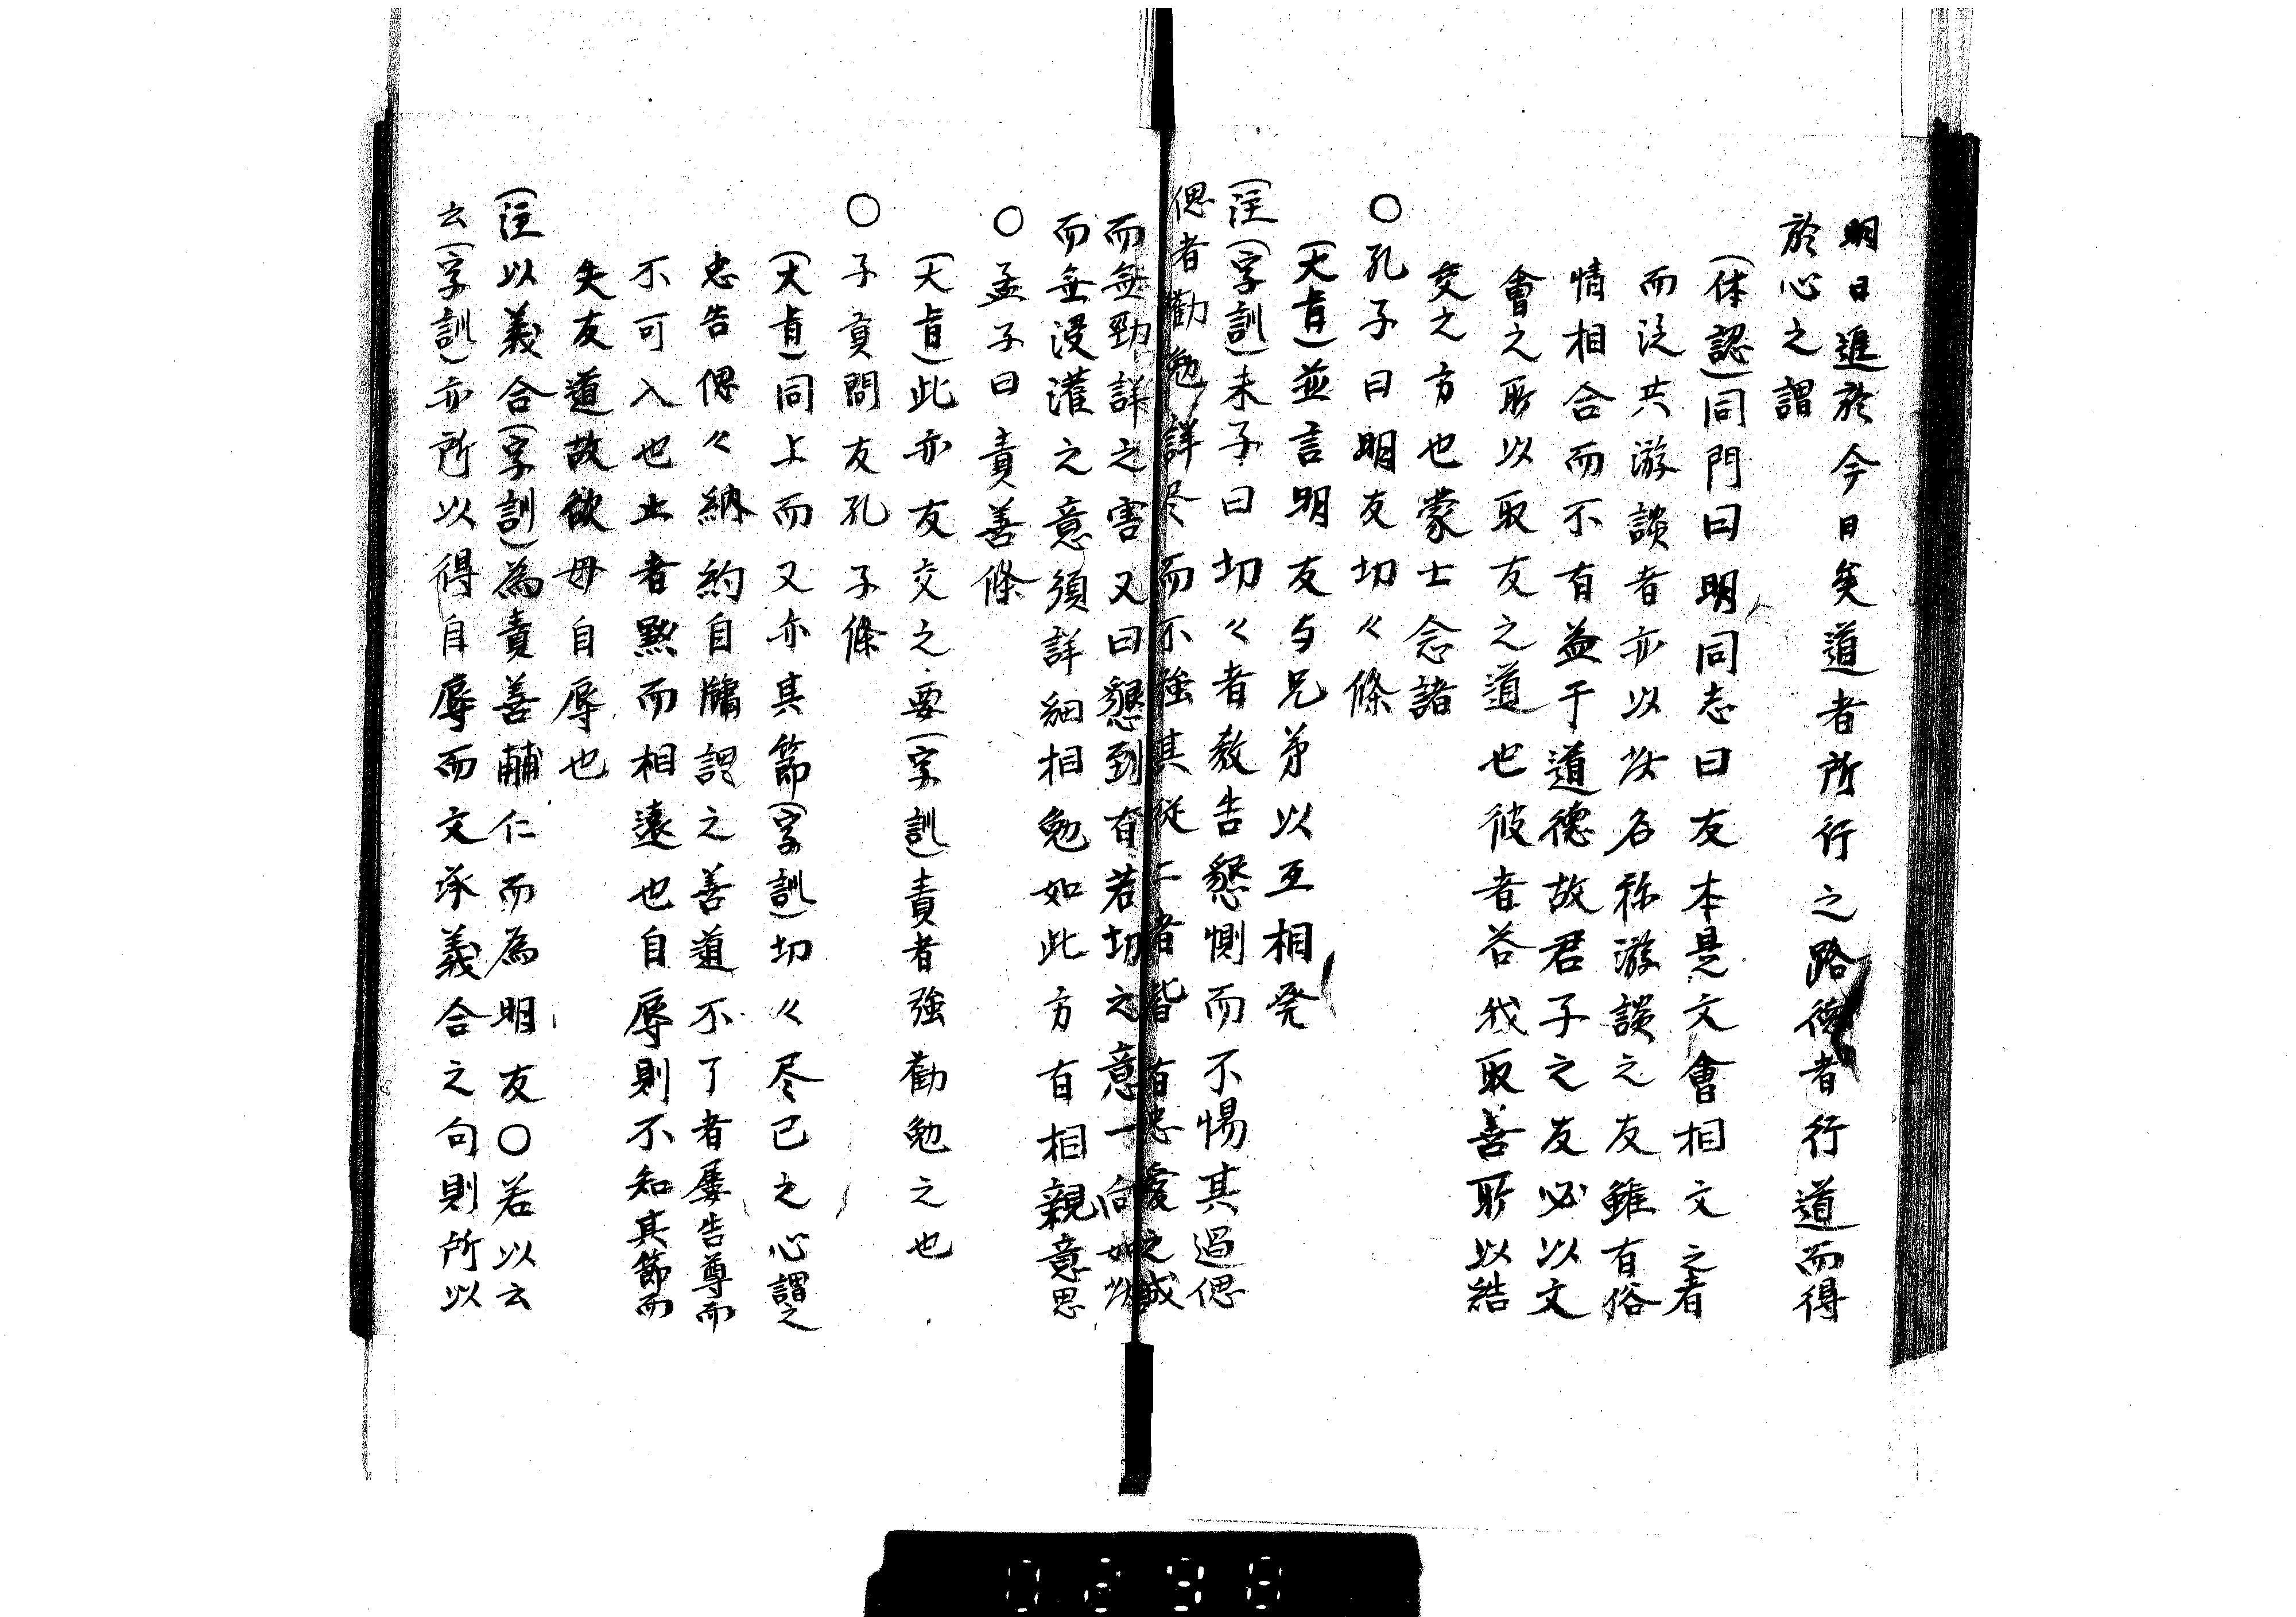 明日進於今日矣道者所行之路德者行道而得
於心之謂
(体認)同門曰明同志曰友本是文會相文之者
而泛共游談者亦以此名称游談之友雖有俗
情相合而不有益于道德故君子之友必以文
會之所以取友之道也彼者益我取善所以結
交之方也蒙士念諸
○孔子曰明友切々條
(大旨)並言明友与兄弟以互相発
(注)(字訓)朱子曰切々者教告懇惻而不惕其過偲
偲者勸勉詳尽而不強其從二者皆有忠愛之誠
而無勁詳之害又曰懇到有若切之意一向如此
而無浸灌之意須詳細相勉如此方有相親意思
○孟子曰責善條
(大旨)此亦友交之要(字訓)責者強勸勉之也
○子貢問友孔子條
(大旨)同上而又亦其節(字訓)切々尽己之心謂之
忠告偲々納約自牖謂之善道不了者屡告尊而
不可入也止者默而相遠也自辱則不知其節而
失友道故欲毋自辱也
(注)以義合(字訓)為責善輔仁而為明友○若以云
云(字訓)亦所以得自辱而文承義合之句則所以
0298